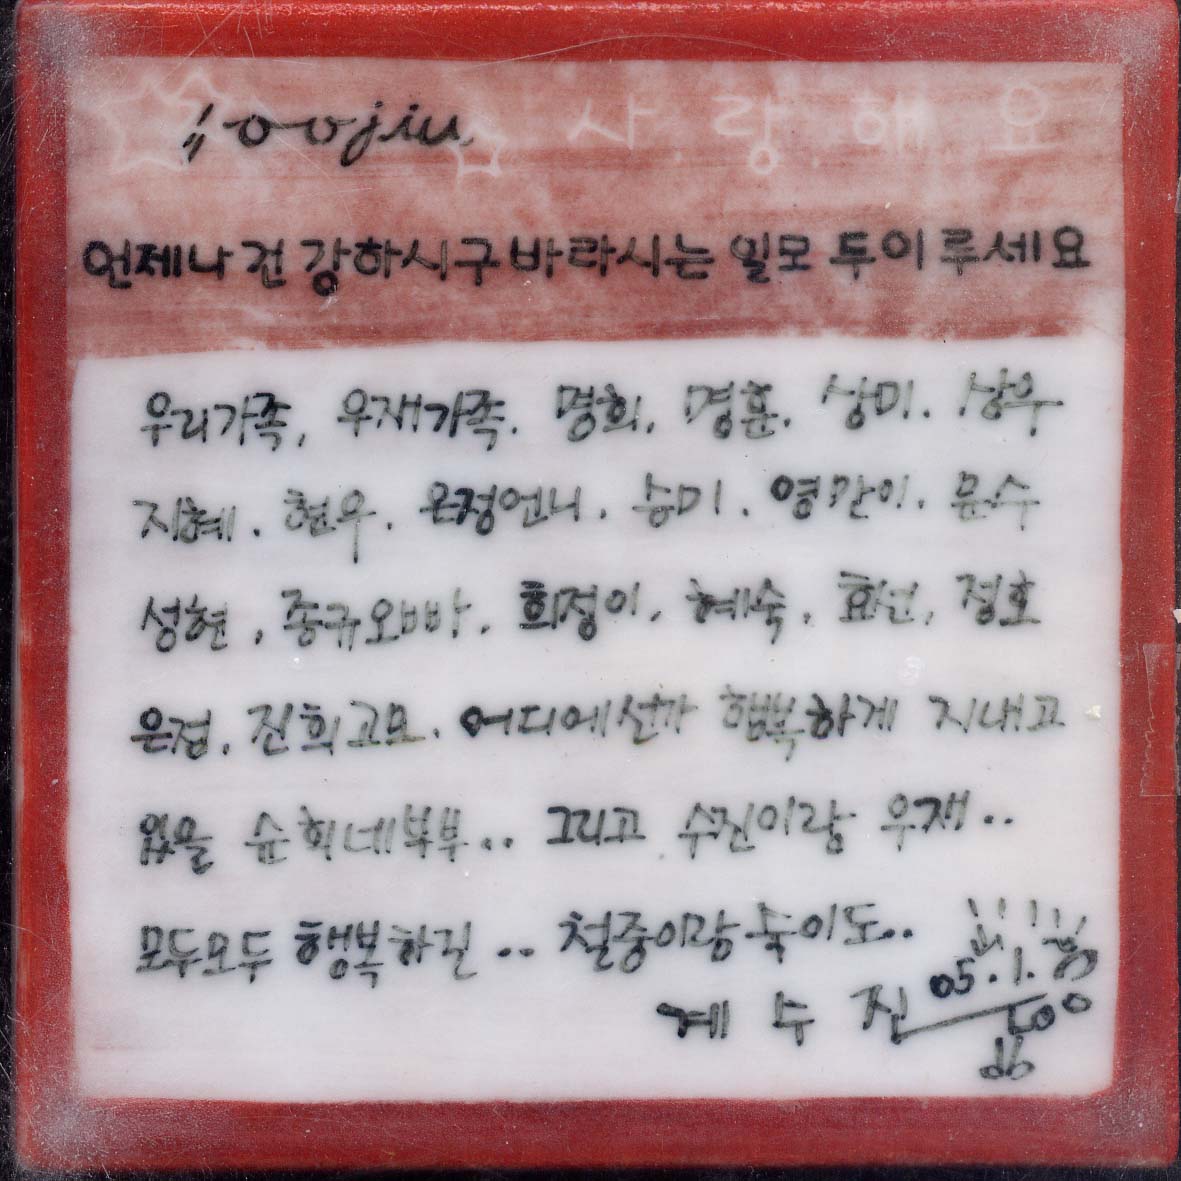 사랑해요
언제나 건강하시구 바라시는 일모두 이루세요
우리가족, 우재가족. 명희, 명훈. 상미. 상우
지혜. 현우. 은정언니. 승미. 영만이. 문수
성현, 종규오빠. 희정이, 혜숙, 효선, 정호
은정, 진희고모. 어디에선가 행복하게 지내고
있을 순희네부부.. 그리고 수진이랑 우재..
모두모두 행복하길.. 철중이랑 숙이도..
계수진 05.1.